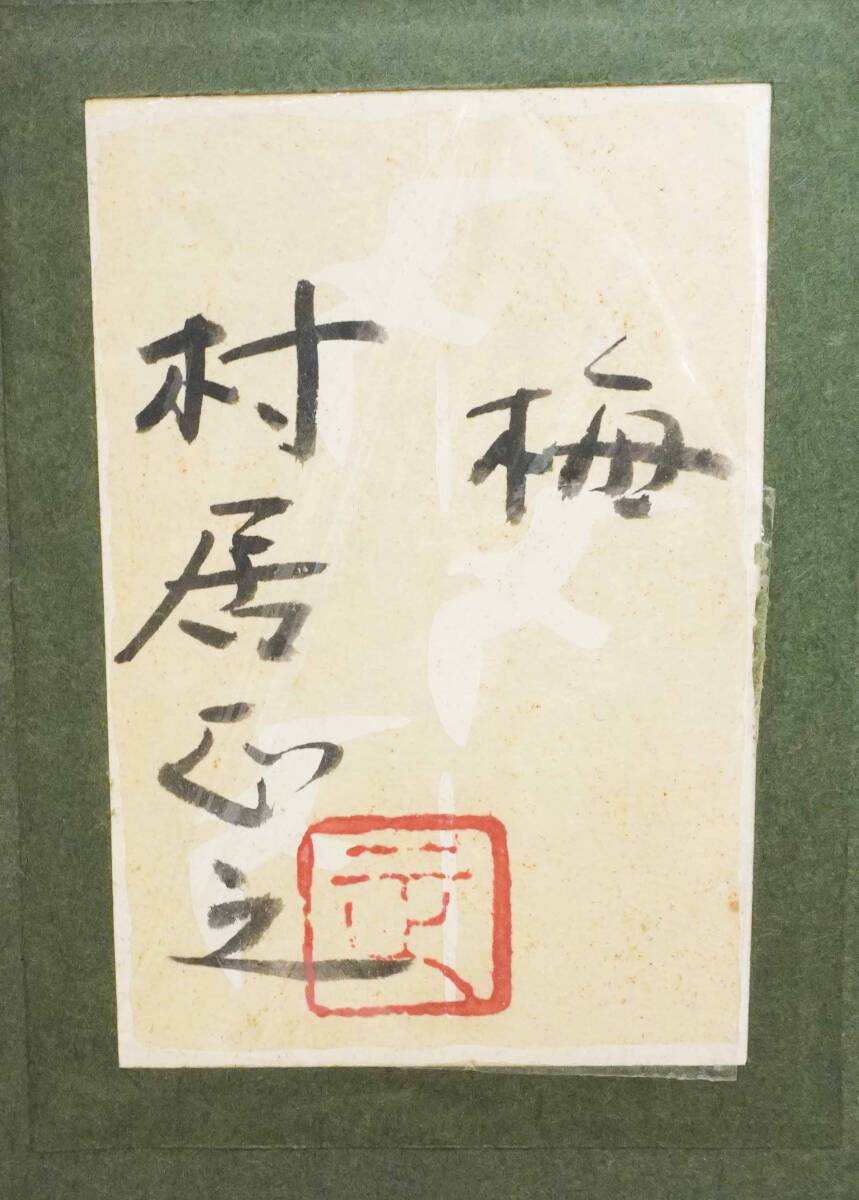 梅
村居正之